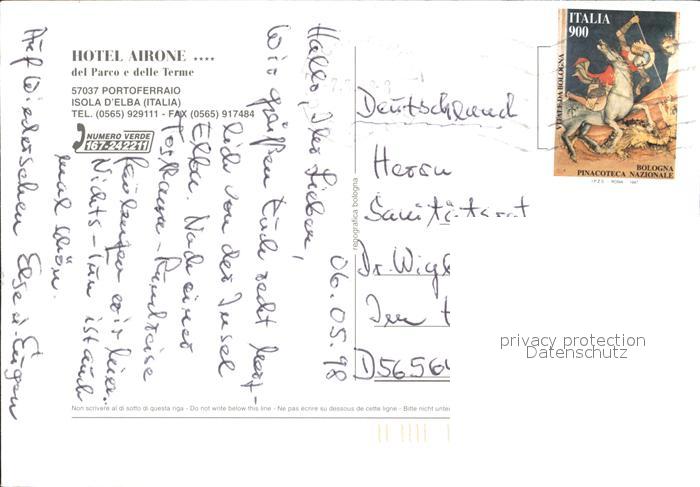 HOTEL AIRONE ....
del Parco e delle Terme
57037 PORTOFERRAIO
ISOLA D'ELBA (ITALIA)
TEL. (0565) 929111 - FAX (0565) 917484
NUMERO VERDE
167-242211
06.05.98
Hallo, Ihr Lieben,
Wir grüßen Euch recht herz-
lich von der Insel
Elba. Nach einer
Toskana-Rundreise
faulenzen wir hier.
Nichts-tun ist auch
mal schön.
Auf Wiedersehen Else + Eugen
repografica bologna
ITALIA
900
VITALE DA BOLOGNA
BOLOGNA
PINACOTECA NAZIONALE
I.P.Z.S. ROMA 1997
Deutschland
Herrn
Sanitätsrat
Dr. Wigb
Im
D56564
privacy protection
Datenschutz
Non scrivere al di sotto di questa riga - Do not write below this line - Ne pas écrire su dessous de cette ligne - Bitte nicht unter